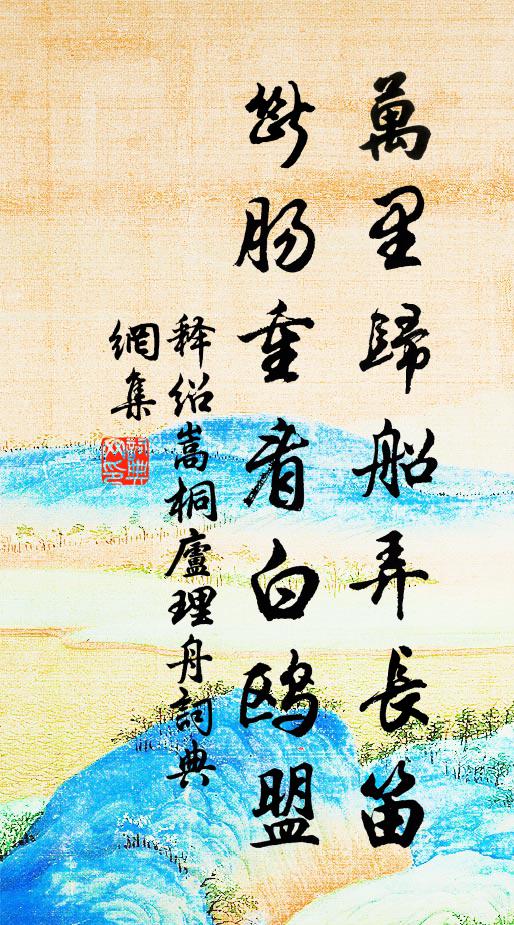 萬里歸船弄長笛
斷腸重看白鷗盟
释紹嵩桐廬理舟詞典
網集